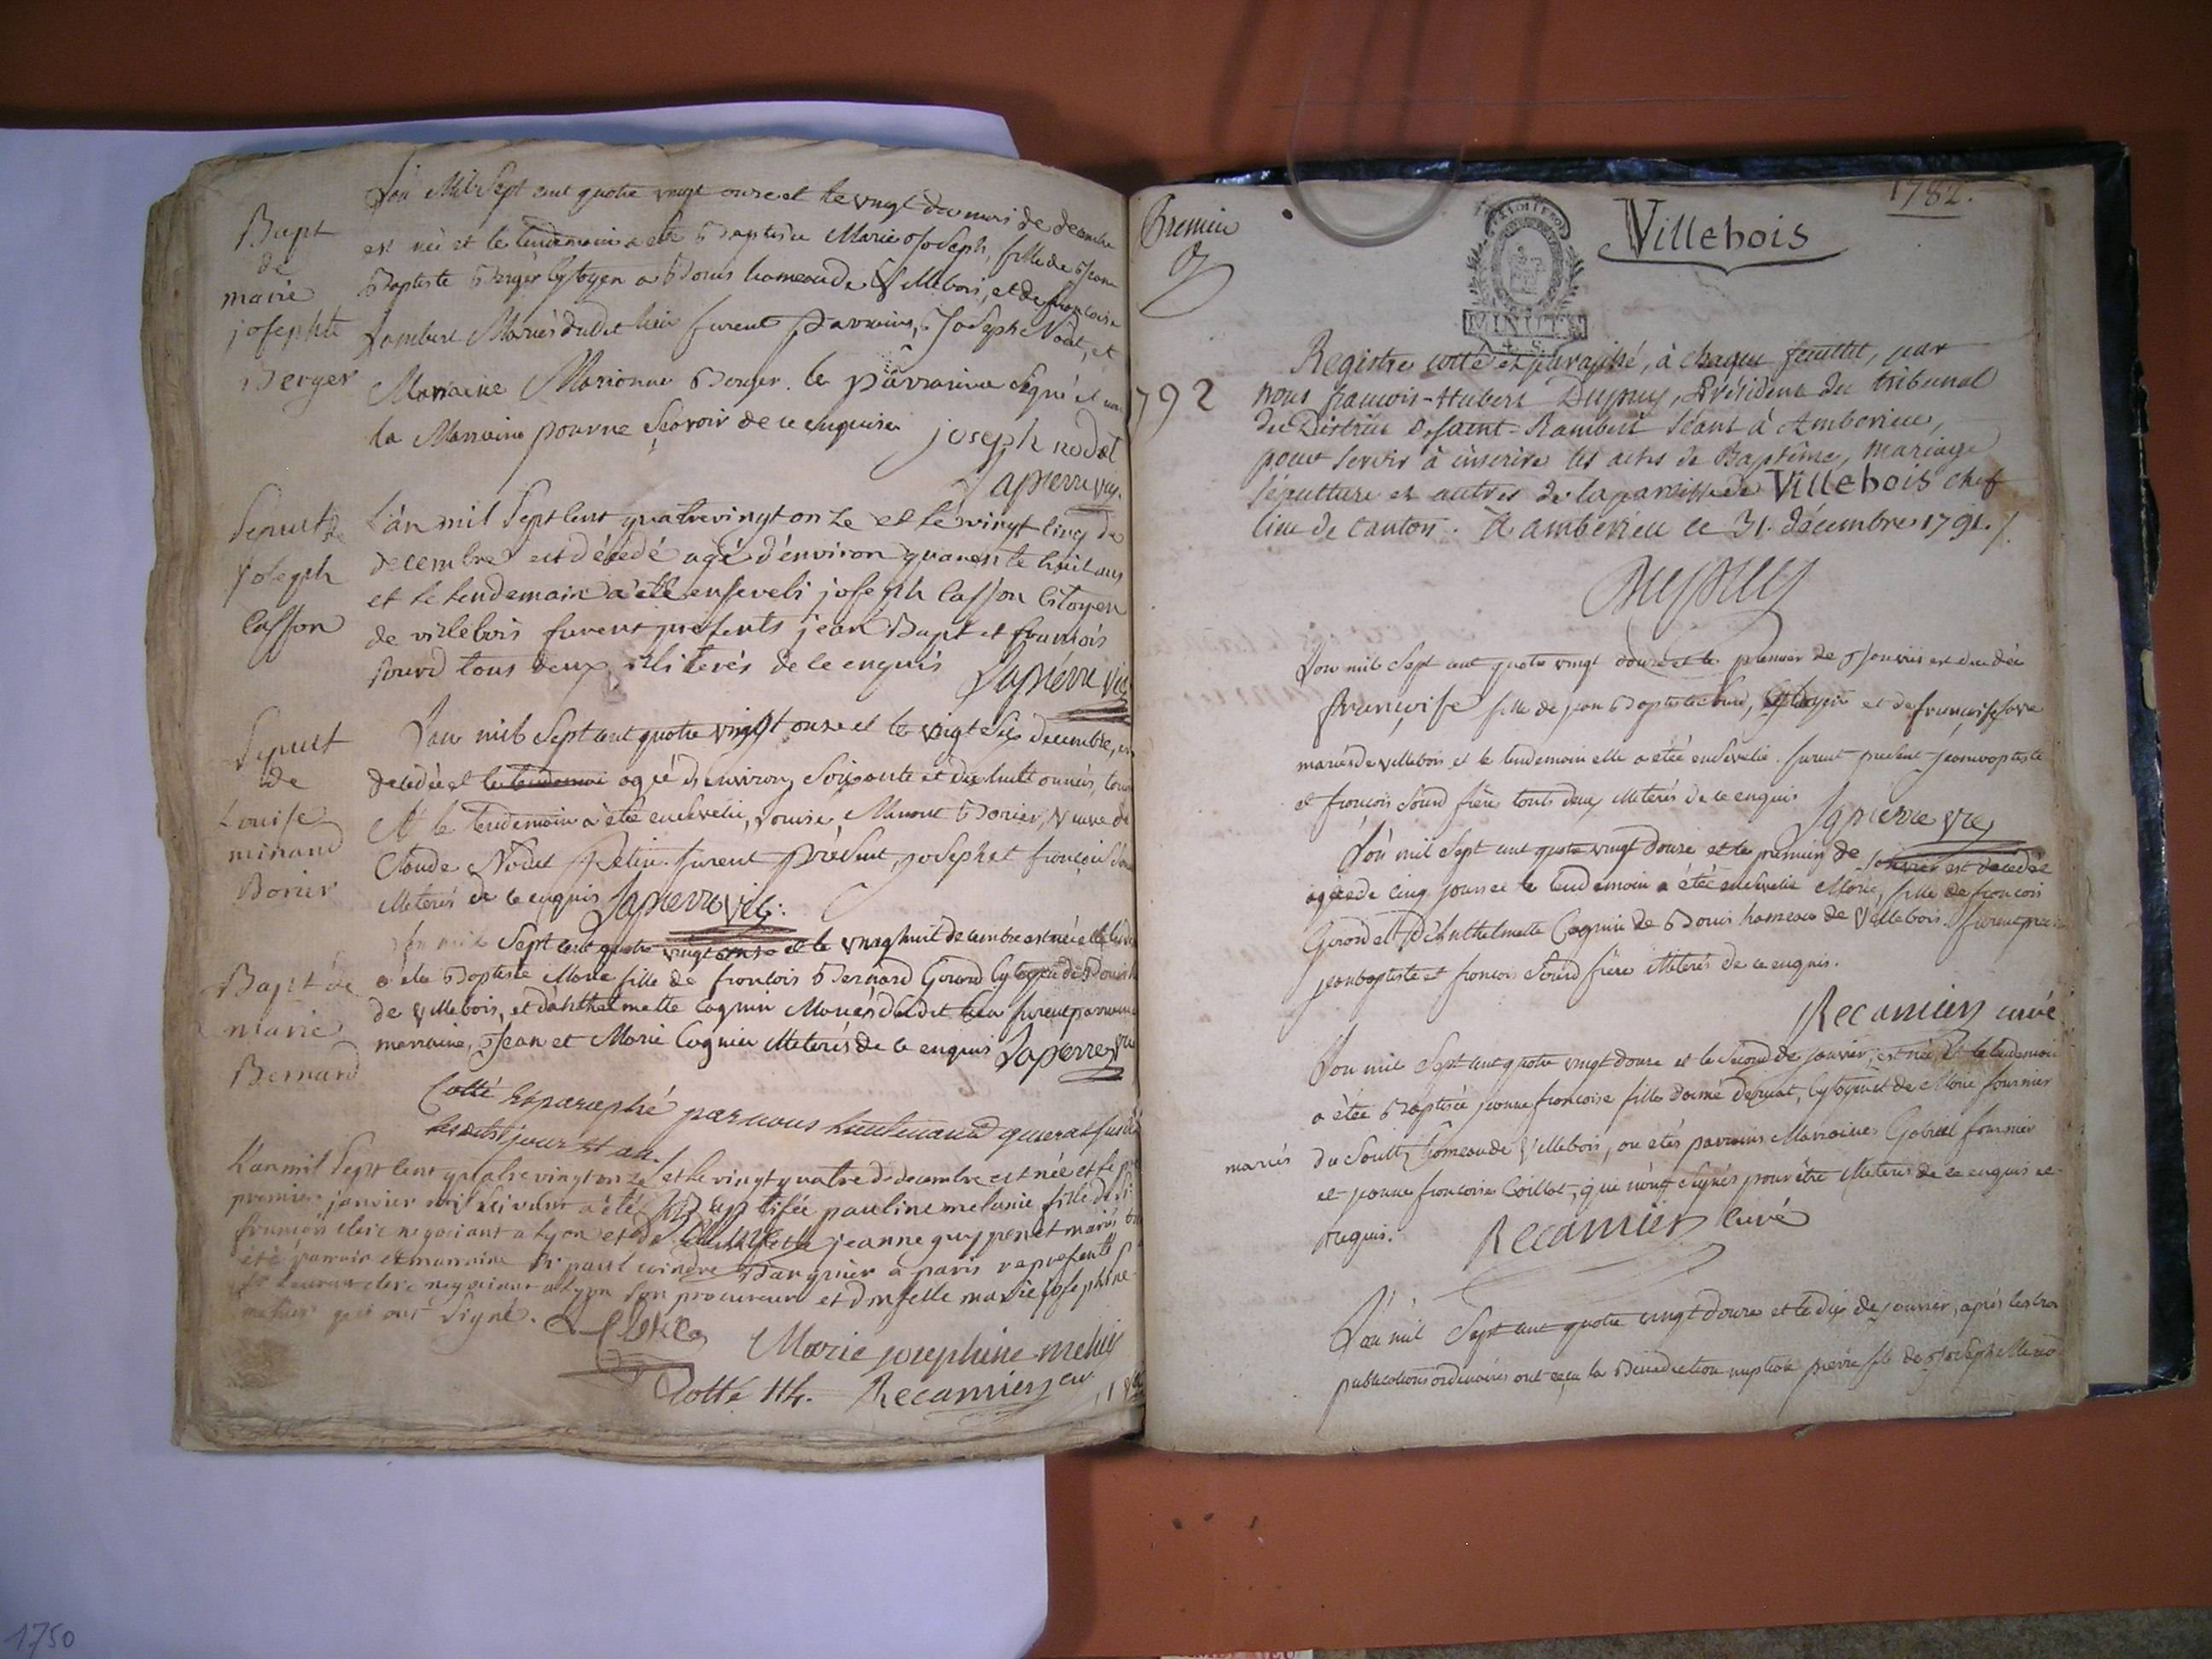 Bapt
de
marie
josephte
Berger
L'an Mil Sept cent quatre vingt onze et le vingt du mois de decembre
est née et le lendemain a été Baptisée Marie Joseph, fille de Jean
Baptiste Berger Cytoyen a Bouis hameau de Villebois, et de francoise
Lambert Mariés dudit lieu furent parrains, Joseph Nodet, et
Marraine Marionne Berger. le parrain a Signé et non
la Marraine pour ne Sçavoir de ce enquise
joseph nodet
Lapierre vic.
Sepult de
Joseph
Casson
L'an mil Sept cent quatrevingt onze et le vingt cinq de
decembre est décédé agé d'environ quarente huit ans
et le lendemain a été enseveli joseph Casson Citoyen
de villebois furent presents jean Bapt et francois
sourd tous deux illiterés de ce enquis
Lapierre vic
Sepult
de
Louise
minand
Borier
L'an mil Sept cent quatre vingt onze et le vingt Six decembre, est
decedée et le lendemain agée d'environ Soixante et dix huit années,
Et le lendemain a été ensevelie, Louise, Borier, Veuve de
Claude Nodet furent présent, joseph et francois
illiterés de ce enquis Lapierre vic.
Bapt de
marie
Bernard
L'an mil Sept cent quatre vingt onze et le vingt huit decembre est née et le
a été Baptisée Marie fille de francois Bernard Girard Cytoyen de Bouis
de Villebois, et d'Anthelmette Cognin Mariés dudit lieu furent parrain
marraine, Jean et Marie Cognin illiterés de ce enquis Lapierre vic
Cotté et paraphé par nous
les dits jour et an.
L'an mil Sept cent quatrevingt onze et le vingt quatre de decembre est née et le
premier janvier suivant a été baptisée pauline melanie fille de Sr
francois clerc negociant a Lyon et de jeanne guyponet mariés
été parrain et marraine Sr paul Banquier à paris representé
clerc negociant a Lyon son procureur et dmselle marie josephine
qui ont signé.
Clerc
Marie josephine
Cotté 114. Recamier cu
Premier
1782.
Villebois
MINUTE
1792
Registre cotté et paraphé, à chaque feuillet, par
nous francois-Hubert Dupuy, Président du tribunal
du District de Saint-Rambert Séant à Amberieu,
pour servir à inscrire les actes de Baptême, mariage
sépulture et autres de la paroisse de Villebois chef
lieu de canton. A amberieu ce 31. décembre 1791./.
Dupuy
L'an mil Sept cent quatre vingt douze et le premier de Janvier est decedée
françoise fille de jean Baptiste Sourd, Cytoyen et de françoise
mariés de villebois et le lendemain elle a été ensevelie. furent present jean baptiste
et françois Sourd frère touts deux illiterés de ce enquis
Lapierre vic
L'an mil Sept cent quatre vingt douze et le premier de janvier est decedée
agée de cinq jours et le lendemain a été ensevelie Marie, fille de francois
Girard et d'Anthelmette Cognin de Bouis hameau de Villebois. furent
jean baptiste et francois Sourd frère illiterés de ce enquis.
Recamier curé
L'an mil Sept cent quatre vingt douze et le Second de janvier, est née, et le lendemain
a été Baptisée jeanne francoise fille d'aimé Cytoyen et de Marie fournier
mariés du Sault hameau de Villebois, ont étés parrains Marraines Gabriel fournier
et jeanne francoise Coillat, qui n'ont Signés pour être illiterés de ce enquis et
requis. Recamier Curé
L'an mil Sept cent quatre vingt douze et le dix de janvier, après les trois
publications ordinaires ont reçu la Benediction nuptiale pierre fils de Joseph
1750